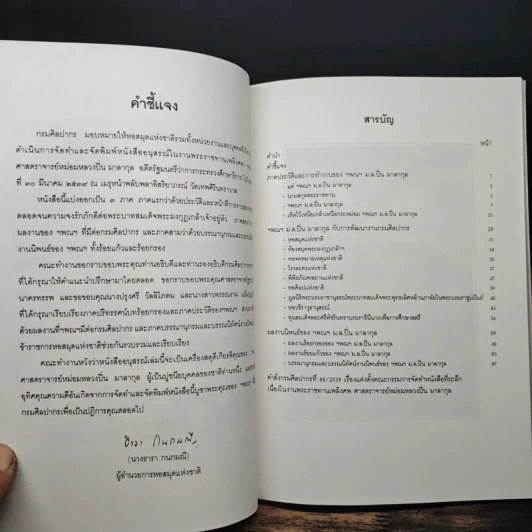 คำชี้แจง
กรมศิลปากร มอบหมายให้หอสมุดแห่งชาติรวมทั้งหน่วยงานและบุคคลที่เกี่ยว
ดำเนินการจัดทำและจัดพิมพ์หนังสืออนุสรณ์ในงานพระราชทานเพลิงศพ
ศาสตราจารย์หม่อมหลวงปิ่น มาลากุล อดีตรัฐมนตรีว่าการกระทรวงศึกษาธิการ
ที่ ๓๐ มีนาคม ๒๕๓๙ ณ เมรุหน้าพลับพลาอิสริยาภรณ์ วัดเทพศิรินทราวาส
หนังสือนี้แบ่งออกเป็น ๓ ภาค ภาคแรกว่าด้วยประวัติและการทำงานของ ฯพณฯ
ตลอดจนความจงรักภักดีต่อพระบาทสมเด็จพระมงกุฎเกล้าเจ้าอยู่หัว
ผลงานของ ฯพณฯ ที่มีต่อกรมศิลปากร และภาคสามว่าด้วยบรรณานุกรมและบรรณนิทัศน์
งานนิพนธ์ของ ฯพณฯ ทั้งร้อยแก้วและร้อยกรอง
คณะทำงานขอกราบขอบพระคุณท่านอธิบดีและท่านรองอธิบดีกรมศิลปากร
ที่ได้กรุณาให้คำแนะนำปรึกษามาโดยตลอด ขอกราบขอบพระคุณศาสตราจารย์
นาครทรรพ และขอขอบคุณนางปรุงศรี วัลลิโภดม และนางสาวพรรณงาม
ที่ได้กรุณาเรียบเรียงภาคปริทรรศน์บทร้อยกรอง และภาคประวัติของฯพณฯ
ด้วยผลงานที่ฯพณฯมีต่อกรมศิลปากร และภาคบรรณานุกรมและบรรณนิทัศน์
ข้าราชการหอสมุดแห่งชาติช่วยกันรวบรวมและเรียบเรียง
คณะทำงานหวังว่าหนังสืออนุสรณ์เล่มนี้จะเป็นเครื่องสดุดีเกียรติคุณของ
ศาสตราจารย์หม่อมหลวงปิ่น มาลากุล ผู้เป็นปูชนียบุคคลของชาติท่านหนึ่ง
อุทิศคุณความดีอันเกิดจากการจัดทำและจัดพิมพ์หนังสือนี้บูชาพระคุณของ
กรมศิลปากรเพื่อเป็นปฏิการคุณตลอดไป
(นางธารา กนกมณี)
ผู้อำนวยการหอสมุดแห่งชาติ
สารบัญ
หน้า
คำนำ
คำชี้แจง
ภาคประวัติและการทำงานของ ฯพณฯ ม.ล.ปิ่น มาลากุล 1
- แด่ ฯพณฯ ม.ล.ปิ่น มาลากุล
- นามสกุลพระราชทาน
- ฯพณฯ ม.ล.ปิ่น มาลากุล
- เทิดไว้เหนือเกล้าเหนือกระหม่อม ฯพณฯ ม.ล.ปิ่น มาลากุล
ฯพณฯ ม.ล.ปิ่น มาลากุล กับการพัฒนางานกรมศิลปากร 29
- หอสมุดแห่งชาติ
- ห้องสมุดพระมงกุฎเกล้าฯ
- หอจดหมายเหตุแห่งชาติ
- โรงละครแห่งชาติ
- พิพิธภัณฑสถานแห่งชาติ
- หอศิลปแห่งชาติ
- มูลนิธิพระบรมราชานุสรณ์พระบาทสมเด็จพระพุทธเลิศหล้านภาลัยในพระบรมราชูปถัมภ์
- หอวชิราวุธานุสรณ์
- ทุนสมเด็จพระศรีพัชรินทราบรมราชินีนาถเพื่อการศึกษาสตรี
ผลงานนิพนธ์ของ ฯพณฯ ม.ล.ปิ่น มาลากุล 59
- ผลงานร้อยกรองของ ฯพณฯ ม.ล.ปิ่น มาลากุล
- ผลงานร้อยแก้วของ ฯพณฯ ม.ล.ปิ่น มาลากุล
- บรรณานุกรมและบรรณนิทัศน์งานนิพนธ์ของ ฯพณฯ ม.ล.ปิ่น มาลากุล
คำสั่งกรมศิลปากรที่ 88/2539 เรื่องแต่งตั้งคณะกรรมการจัดทำหนังสือที่ระลึก
เนื่องในงานพระราชทานเพลิงศพ ศาสตราจารย์หม่อมหลวงปิ่น มาลากุล